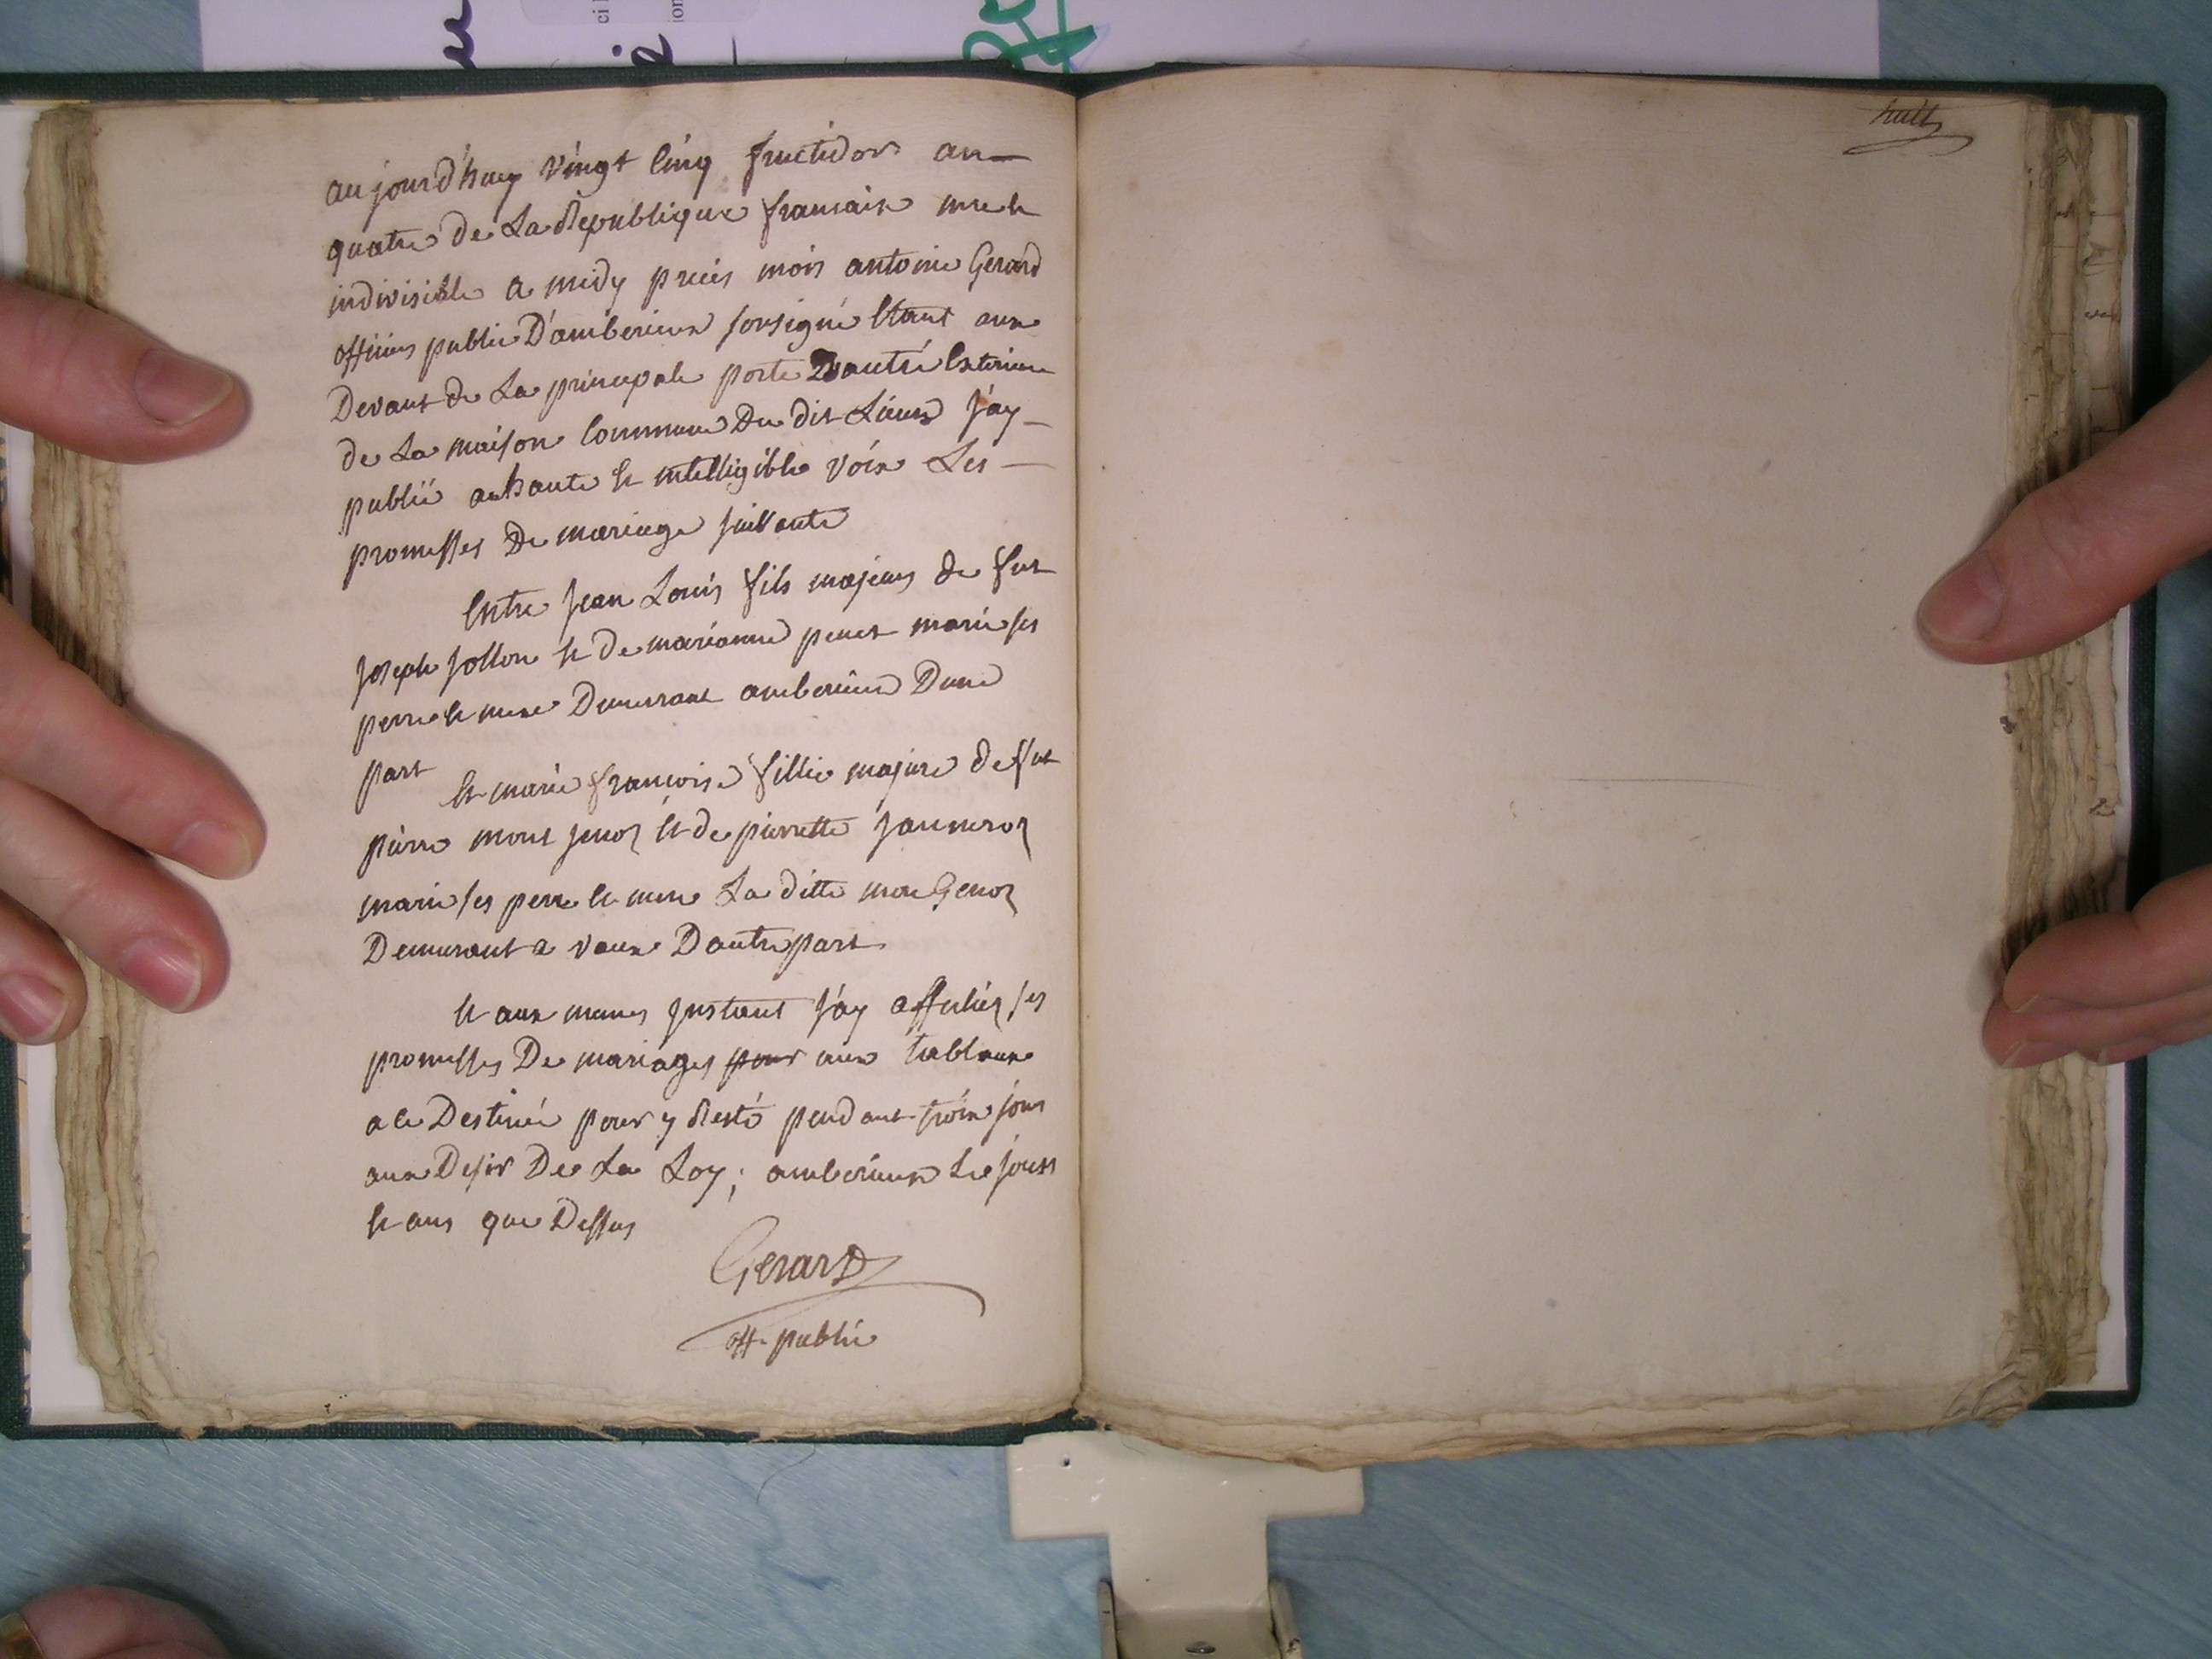 aujourd'huy vingt cinq fructidor an
quatre de La Republique francaise une et
indivisible a midy precis mois antoine Gerard
officier public D'amberieux sousigné Etant aux
Devant de La principale porte D'autré Exterieure
de La maison Commune Du dit Lieux J'ay
publié a haute Et intelligible voix Les
promesses De mariage suivante
Entre Jean Louis fils majeur de fut
Joseph Jollon Et de marianne marie ses
perre et mere Demurant amberieux Dune
part
Et marie françoise fillie majure de fut
pierre mont Jenoz Et de pierrette
marie ses perre et mere La ditte mon Genoz
Demurant a vaux Dautre part
Et aux mames Instant J'ay affichéz ses
promesses De mariages pour aux tableaux
a ce Destiné pour y Resté pendant troix jour
aux Desir De La Loy ; amberieux Le jour
Et ans que Dessus
Gerard
off. public
huitt